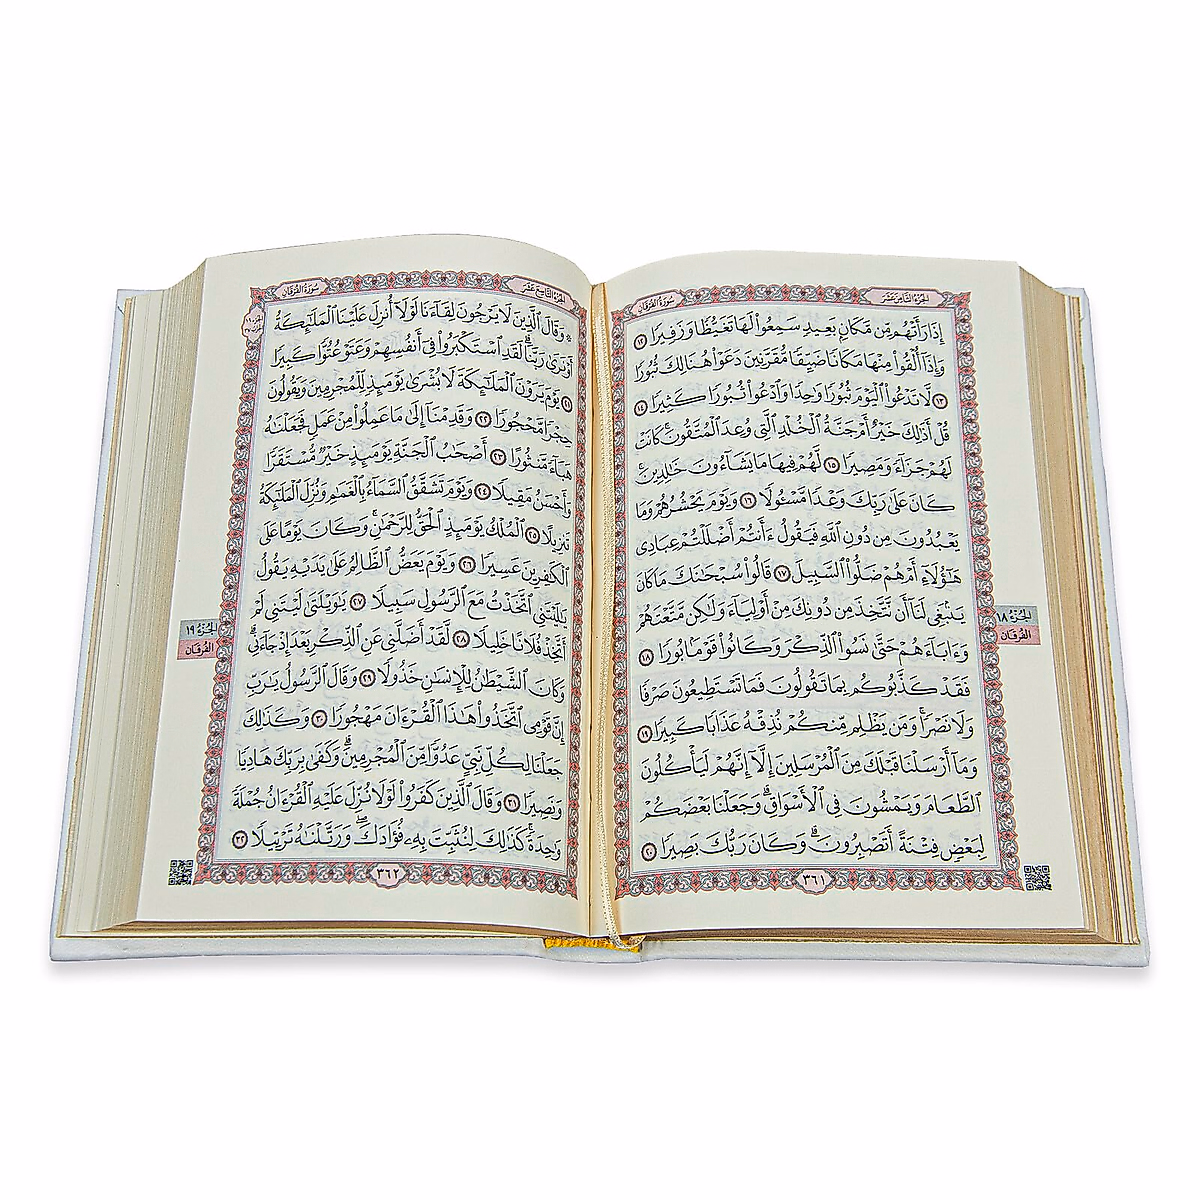 الجزء الثامن عشر
سورة الفرقان
إِذَا رَأَتْهُم مِّن مَّكَانٍ بَعِيدٍ سَمِعُوا۟ لَهَا تَغَيُّظًا وَزَفِيرًا ١٢
وَإِذَآ أُلْقُوا۟ مِنْهَا مَكَانًا ضَيِّقًا مُّقَرَّنِينَ دَعَوْا۟ هُنَالِكَ ثُبُورًا
١٣ لَّا تَدْعُوا۟ ٱلْيَوْمَ ثُبُورًا وَٰحِدًا وَٱدْعُوا۟ ثُبُورًا كَثِيرًا ١٤
قُلْ أَذَٰلِكَ خَيْرٌ أَمْ جَنَّةُ ٱلْخُلْدِ ٱلَّتِى وُعِدَ ٱلْمُتَّقُونَ ۚ كَانَتْ
لَهُمْ جَزَآءً وَمَصِيرًا ١٥ لَّهُمْ فِيهَا مَا يَشَآءُونَ خَٰلِدِينَ ۚ
كَانَ عَلَىٰ رَبِّكَ وَعْدًا مَّسْـُٔولًا ١٦ وَيَوْمَ يَحْشُرُهُمْ وَمَا
يَعْبُدُونَ مِن دُونِ ٱللَّهِ فَيَقُولُ ءَأَنتُمْ أَضْلَلْتُمْ عِبَادِى
هَٰٓؤُلَآءِ أَمْ هُمْ ضَلُّوا۟ ٱلسَّبِيلَ ١٧ قَالُوا۟ سُبْحَٰنَكَ مَا كَانَ
يَنۢبَغِى لَنَآ أَن نَّتَّخِذَ مِن دُونِكَ مِنْ أَوْلِيَآءَ وَلَٰكِن مَّتَّعْتَهُمْ
وَءَابَآءَهُمْ حَتَّىٰ نَسُوا۟ ٱلذِّكْرَ وَكَانُوا۟ قَوْمًۢا بُورًا ١٨
فَقَدْ كَذَّبُوكُم بِمَا تَقُولُونَ فَمَا تَسْتَطِيعُونَ صَرْفًا
وَلَا نَصْرًا ۚ وَمَن يَظْلِم مِّنكُمْ نُذِقْهُ عَذَابًا كَبِيرًا ١٩
وَمَآ أَرْسَلْنَا قَبْلَكَ مِنَ ٱلْمُرْسَلِينَ إِلَّآ إِنَّهُمْ لَيَأْكُلُونَ
ٱلطَّعَامَ وَيَمْشُونَ فِى ٱلْأَسْوَاقِ ۗ وَجَعَلْنَا بَعْضَكُمْ
لِبَعْضٍ فِتْنَةً أَتَصْبِرُونَ ۗ وَكَانَ رَبُّكَ بَصِيرًا ٢٠
٣٦١
الجزء ١٨
الفرقان
الجزء التاسع عشر
سورة الفرقان
۞ وَقَالَ ٱلَّذِينَ لَا يَرْجُونَ لِقَآءَنَا لَوْلَآ أُنزِلَ عَلَيْنَا ٱلْمَلَٰٓئِكَةُ
أَوْ نَرَىٰ رَبَّنَا ۗ لَقَدِ ٱسْتَكْبَرُوا۟ فِىٓ أَنفُسِهِمْ وَعَتَوْ عُتُوًّا كَبِيرًا
٢١ يَوْمَ يَرَوْنَ ٱلْمَلَٰٓئِكَةَ لَا بُشْرَىٰ يَوْمَئِذٍ لِّلْمُجْرِمِينَ وَيَقُولُونَ
حِجْرًا مَّحْجُورًا ٢٢ وَقَدِمْنَآ إِلَىٰ مَا عَمِلُوا۟ مِنْ عَمَلٍ فَجَعَلْنَٰهُ
هَبَآءً مَّنثُورًا ٢٣ أَصْحَٰبُ ٱلْجَنَّةِ يَوْمَئِذٍ خَيْرٌ مُّسْتَقَرًّا
وَأَحْسَنُ مَقِيلًا ٢٤ وَيَوْمَ تَشَقَّقُ ٱلسَّمَآءُ بِٱلْغَمَٰمِ وَنُزِّلَ ٱلْمَلَٰٓئِكَةُ
تَنزِيلًا ٢٥ ٱلْمُلْكُ يَوْمَئِذٍ ٱلْحَقُّ لِلرَّحْمَٰنِ ۚ وَكَانَ يَوْمًا عَلَى
ٱلْكَٰفِرِينَ عَسِيرًا ٢٦ وَيَوْمَ يَعَضُّ ٱلظَّالِمُ عَلَىٰ يَدَيْهِ يَقُولُ
يَٰلَيْتَنِى ٱتَّخَذْتُ مَعَ ٱلرَّسُولِ سَبِيلًا ٢٧ يَٰوَيْلَتَىٰ لَيْتَنِى لَمْ
أَتَّخِذْ فُلَانًا خَلِيلًا ٢٨ لَّقَدْ أَضَلَّنِى عَنِ ٱلذِّكْرِ بَعْدَ إِذْ جَآءَنِى ۗ
وَكَانَ ٱلشَّيْطَٰنُ لِلْإِنسَٰنِ خَذُولًا ٢٩ وَقَالَ ٱلرَّسُولُ يَٰرَبِّ
إِنَّ قَوْمِى ٱتَّخَذُوا۟ هَٰذَا ٱلْقُرْءَانَ مَهْجُورًا ٣٠ وَكَذَٰلِكَ
جَعَلْنَا لِكُلِّ نَبِىٍّ عَدُوًّا مِّنَ ٱلْمُجْرِمِينَ ۗ وَكَفَىٰ بِرَبِّكَ هَادِيًا
وَنَصِيرًا ٣١ وَقَالَ ٱلَّذِينَ كَفَرُوا۟ لَوْلَا نُزِّلَ عَلَيْهِ ٱلْقُرْءَانُ جُمْلَةً
وَٰحِدَةً ۚ كَذَٰلِكَ لِنُثَبِّتَ بِهِۦ فُؤَادَكَ ۖ وَرَتَّلْنَٰهُ تَرْتِيلًا ٣٢
٣٦٢
الجزء ١٩
الفرقان